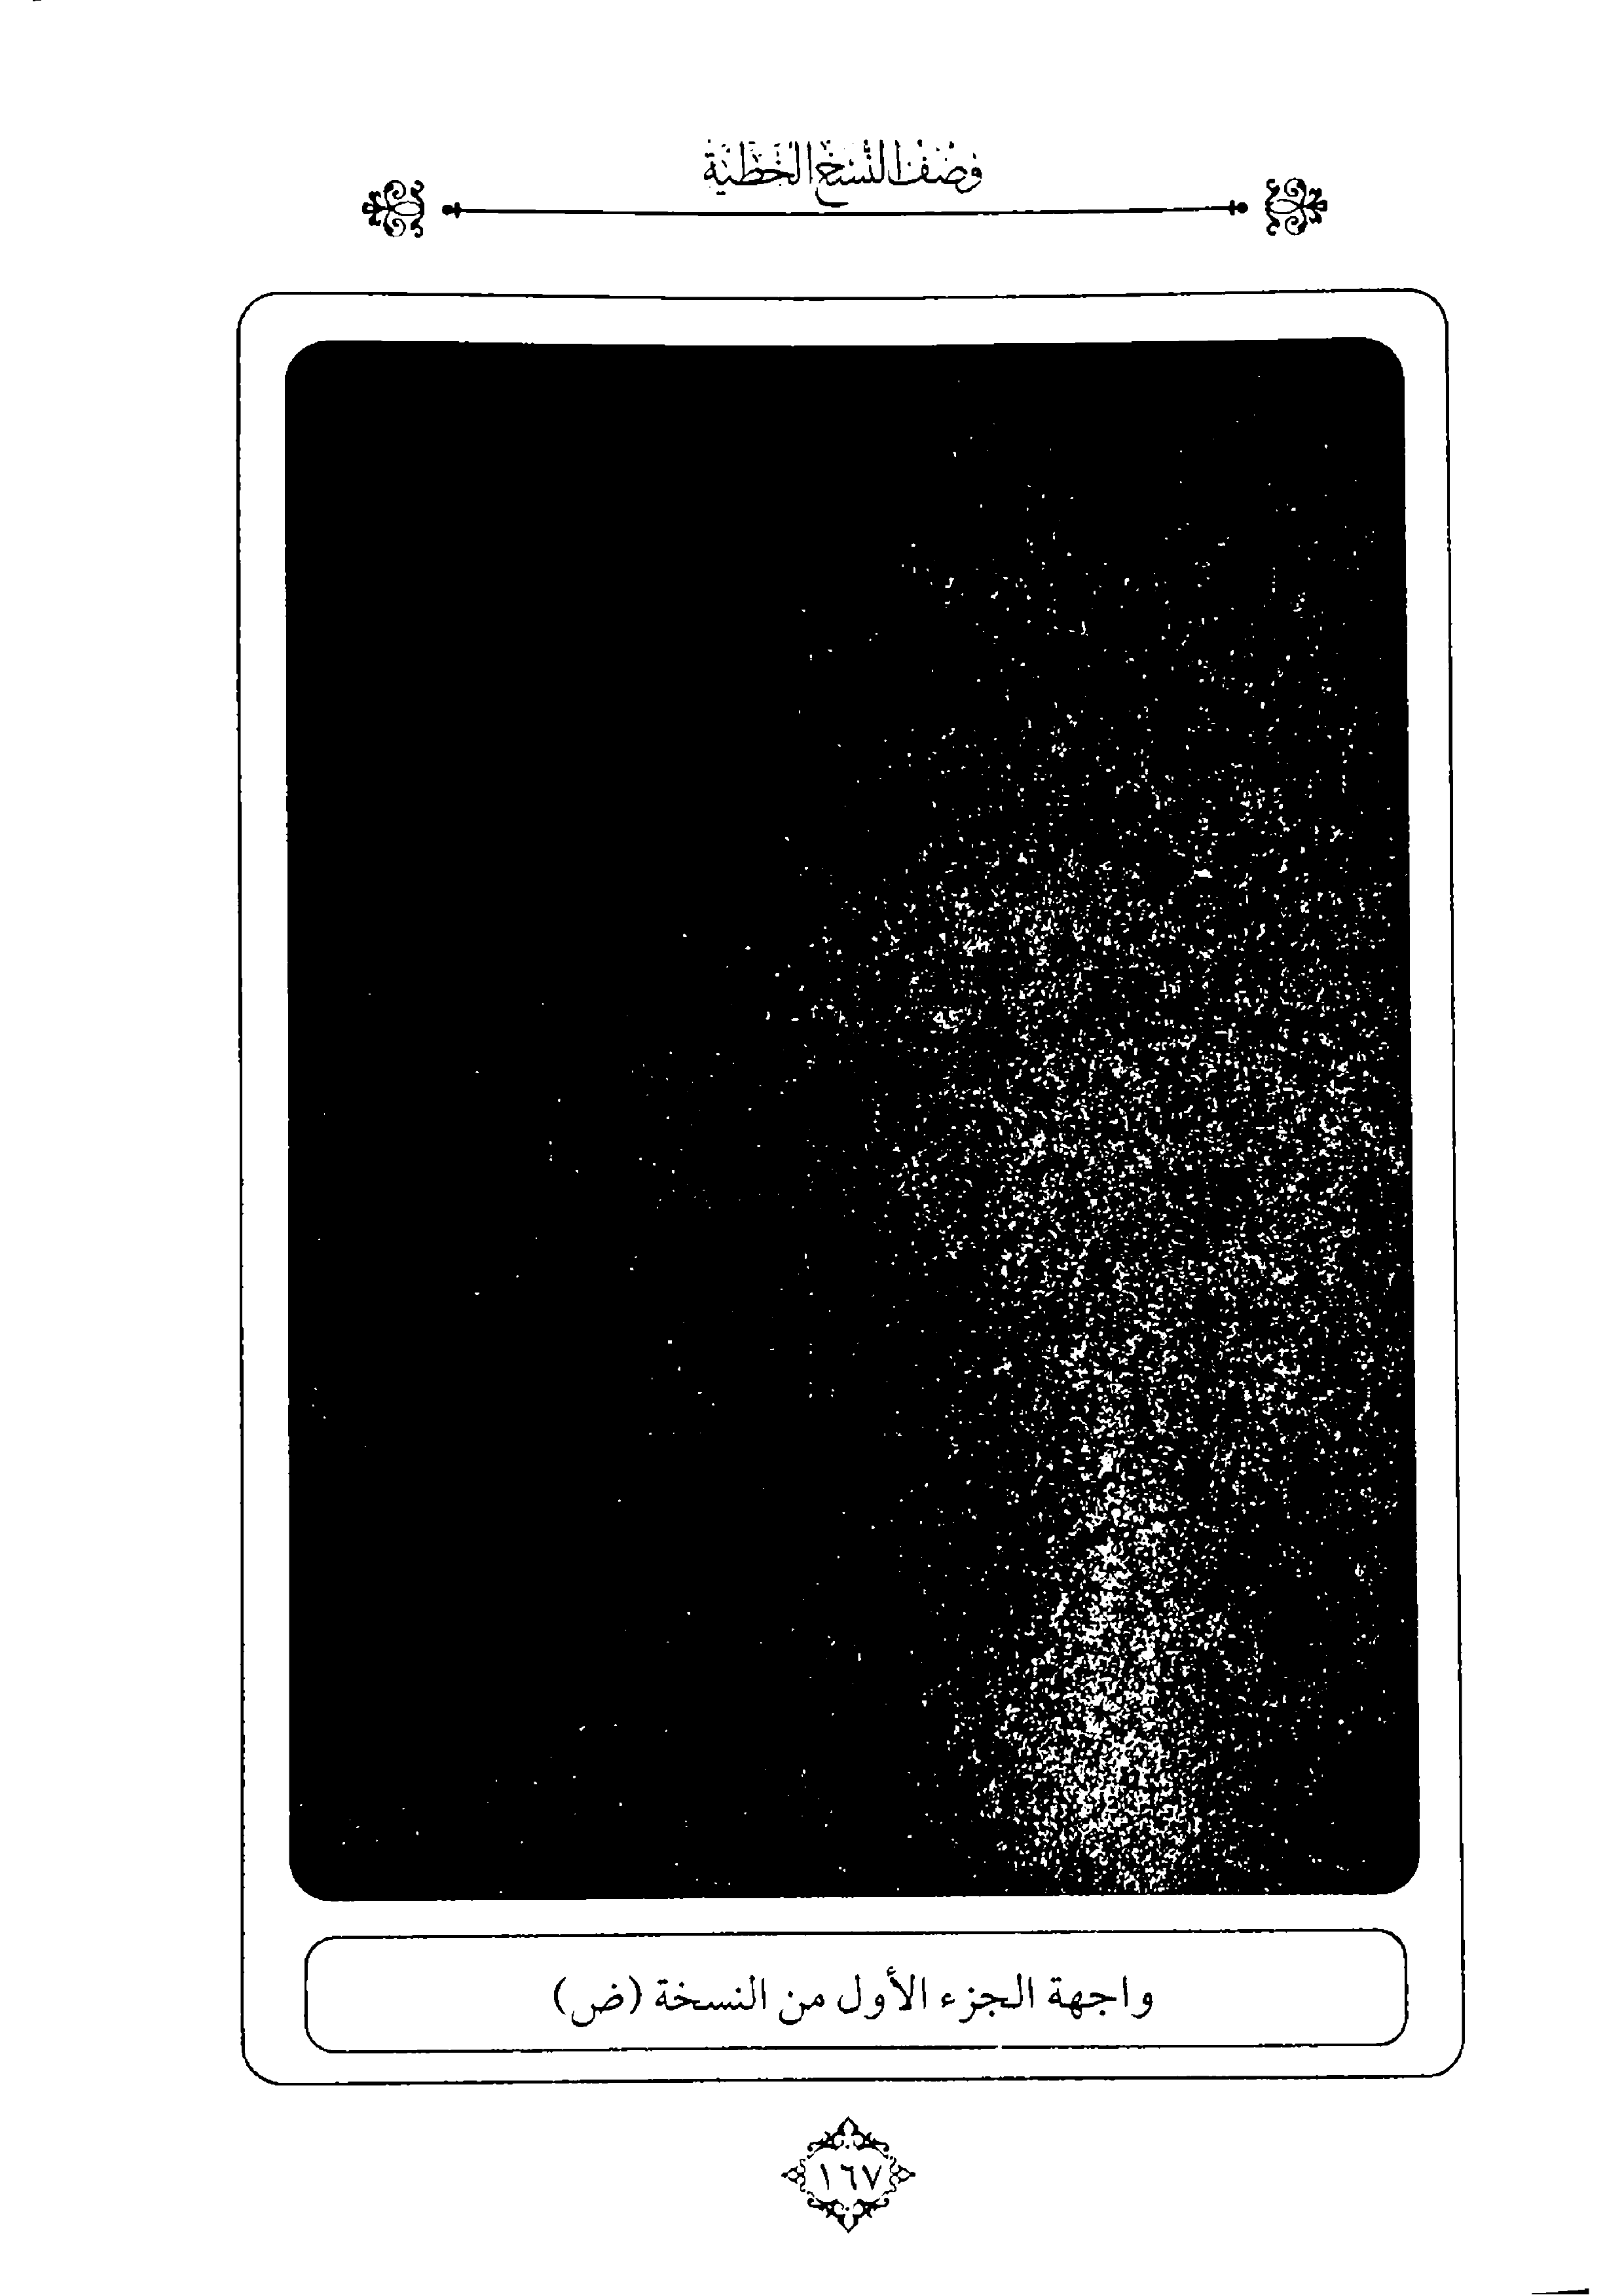 وصف النسخ الخطية
واجهة الجزء الأول من النسخة (ض)
١٦٧